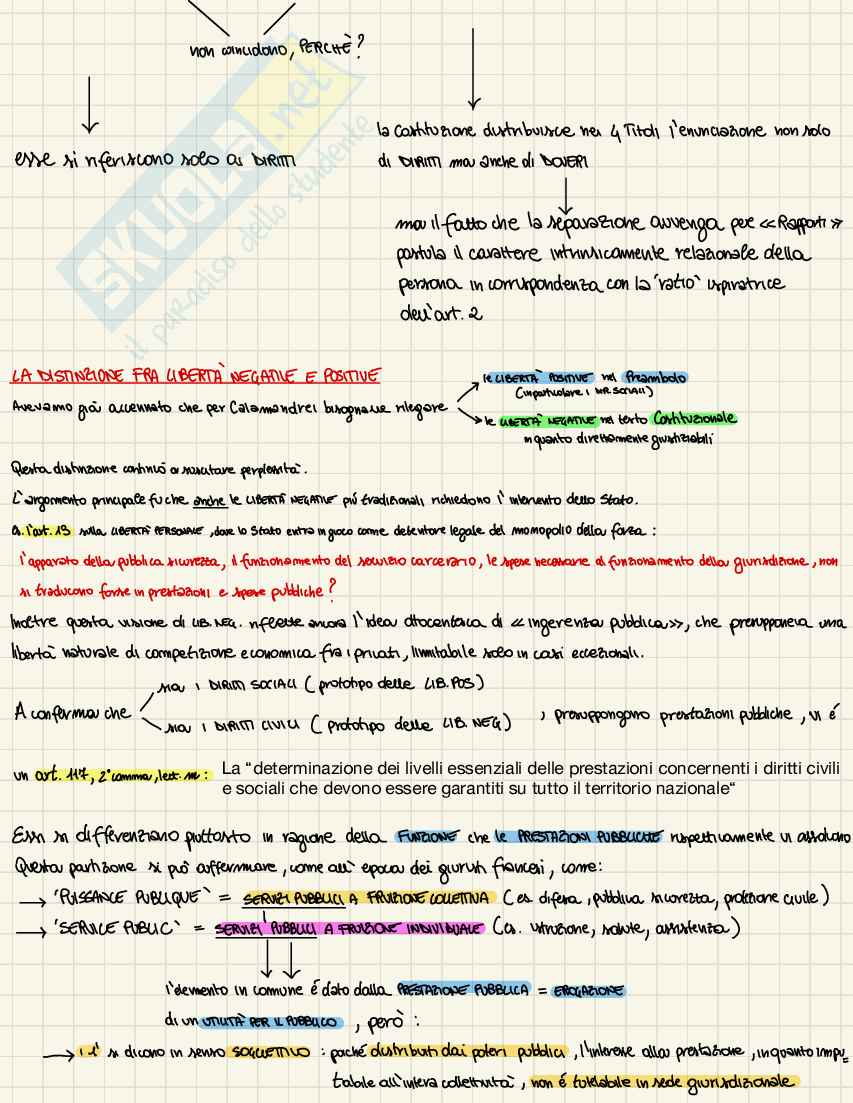 non coincidono, PERCHÈ?
esse si riferiscono solo ai DIRITTI
la Costituzione distribuisce nei 4 Titoli l'enunciazione non solo
di DIRITTI ma anche di DOVERI
ma il fatto che la separazione avvenga per «Rapporti»
postula il carattere intrinsicamente relazionale della
persona in corrispondenza con la 'ratio' ispiratrice
dell'art. 2
SKUOLA.net
il paradiso dello studente
LA DISTINZIONE FRA LIBERTÀ NEGATIVE E POSITIVE
Avevamo già accennato che per Calamandrei bisognasse rilegare
le LIBERTÀ POSITIVE nel Preambolo
(in particolare i DIR. SOCIALI)
le LIBERTÀ NEGATIVE nel testo Costituzionale
in quanto direttamente giustiziabili
Questa distinzione continuò a suscitare perplessità.
L'argomento principale fu che anche le LIBERTÀ NEGATIVE più tradizionali richiedono l'intervento dello Stato.
Es. l'art. 13 sulla LIBERTÀ PERSONALE, dove lo Stato entra in gioco come detentore legale del momopolio della forza:
l'apparato della pubblica sicurezza, il funzionamento del servizio carcerario, le spese necessarie al funzionamento della giurisdizione, non
si traducono forse in prestazioni e spese pubbliche?
Inoltre questa visione di LIB. NEG. riflette ancora l'idea ottocentesca di «ingerenza pubblica», che presupponeva una
libertà naturale di competizione economica fra i privati, limitabile solo in casi eccezionali.
A conferma che
sia i DIRITTI SOCIALI (prototipo delle LIB. POS)
sia i DIRITTI CIVILI (prototipo delle LIB. NEG)
, presuppongono prestazioni pubbliche, vi é
un art. 117, 2° comma, lett. m: La "determinazione dei livelli essenziali delle prestazioni concernenti i diritti civili
e sociali che devono essere garantiti su tutto il territorio nazionale"
Essi si differenziano piuttosto in ragione della FUNZIONE che le PRESTAZIONI PUBBLICHE rispettivamente vi assolvono
Questa partizione si può affermare, come all'epoca dei giuristi francesi, come:
→ 'PUISSANCE PUBLIQUE' = SERVIZI PUBBLICI A FRUIZIONE COLLETTIVA (es. difesa, pubblica sicurezza, protezione civile)
→ 'SERVICE PUBLIC' = SERVIZI PUBBLICI A FRUIZIONE INDIVIDUALE (es. istruzione, salute, assistenza)
l'elemento in comune é dato dalla PRESTAZIONE PUBBLICA = EROGAZIONE
di un UTILITÀ PER IL PUBBLICO, però:
→ i 1° si dicono in senso SOGGETTIVO: poiché distribuiti dai poteri pubblici, l'interesse alla prestazione, in quanto impu=
tabile all'intera collettività, non é tutelabile in sede giurisdizionale